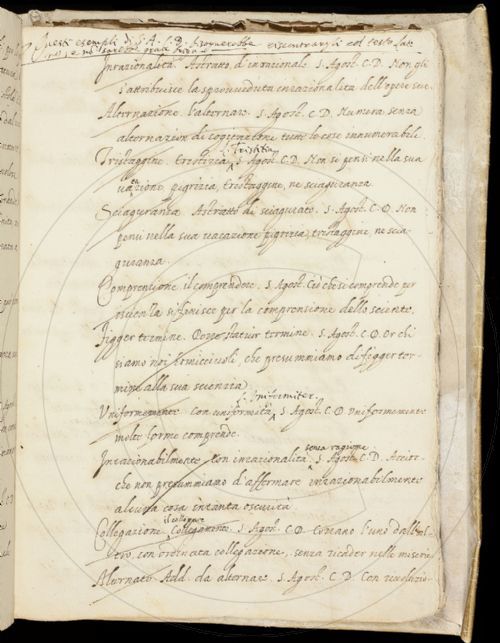 Questi esempli di S. A. C. D. bisognerebbe riscontrargli col testo lat:
Inrazionalità Astratto d'inrazionale. S. Agost. C. D. Non gli
s'attribuisce la sprovveduta inrazionalità dell'opere sue
Alternazione. l'alternare. S. Agost. C. D. Numera senza
alternazion di cogitazione tutte le cose innumerabili.
Tristitia
Tristaggine. tristizia S. Agost. C. D. Non si pensi nella sua
vacazione, pigrizia, tristaggine, ne sciaguranza.
Sciaguranza Astratto di sciagurato. S. Agost. C. D. Non
pensi nella sua vacazione pigrizia, tristaggine, ne scia-
guranza.
Comprensione. il comprendere. S. Agost. Ciò che si comprende per
scienza si finisce per la comprensione dello sciente.
Figger termine. Porre statuir termine. S. Agost. C. D. Or chi
siamo noi homicciuoli, che presummiamo di figger ter-
mine alla sua scienzia
Uniformiter.
Uniformemente con uniformità S. Agost. C. D. Uniformemente
molte forme comprende.
senza ragione
Inrazionabilmente con inrazionalità S. Agost. C. D. Accioc-
che non presummiamo d'affermare inrazionabilmente
alcuna cosa in tanta oscurità
il collegare
Collegazione. Collegamento. S. Agost. C. D. Corrano l'uno dall'al-
tro, con ordinata collegazione, senza ricader nelle miserie
Alternato Add. da alternare. S. Agost. C. D. Con revoluzio-